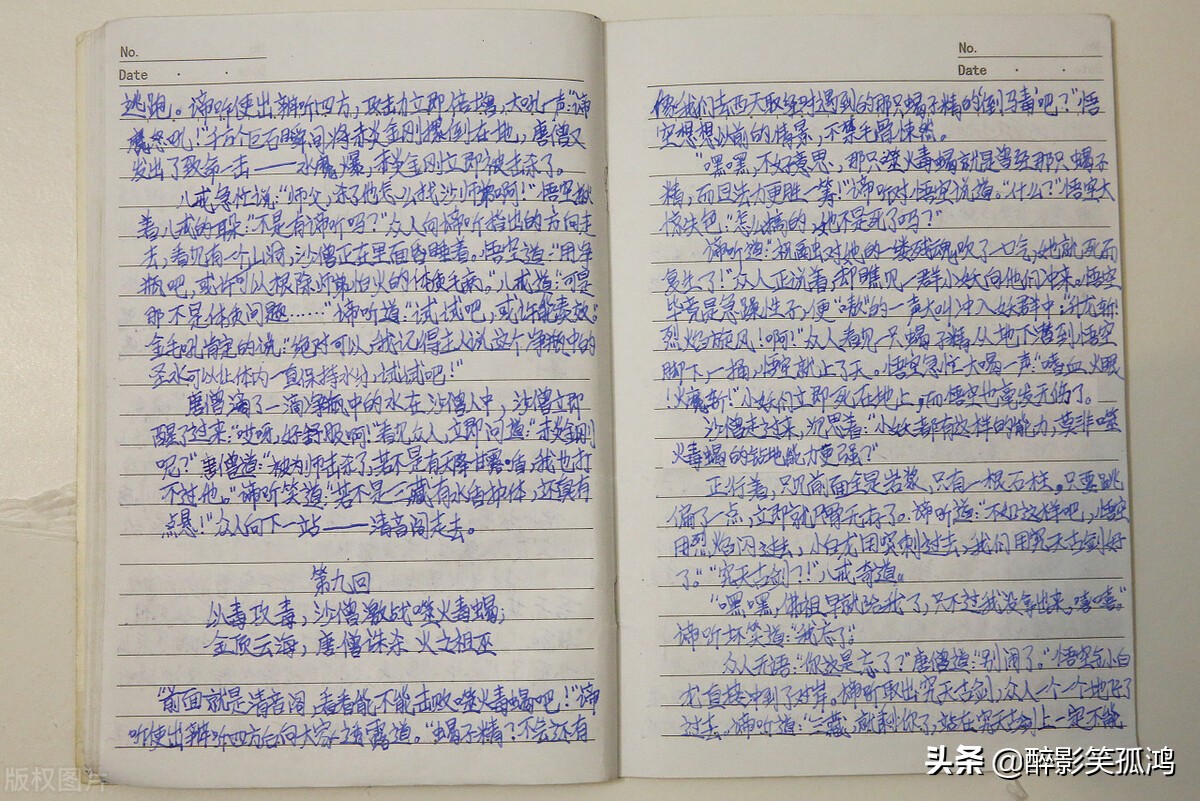 No.
Date
逃跑。谛听使出辨听四方，攻击力立即倍增，大吼一声："谛
听怒吼！"千万个巨石瞬间将赤炎金刚撂倒在地，唐僧又
发出了致命一击——水魔爆，赤炎金刚立即被击杀了。
八戒急忙说："师父，杀了他怎么找沙师弟啊！"悟空揪
着八戒的耳朵："不是有谛听吗？"众人向谛听指出的方向走
去，看见有一个山洞，沙僧正在里面昏睡着。悟空道："用净
瓶吧，或许可以根除师弟怕火的体质毛病。"八戒道："可是
那不是体质问题……"谛听道："试试吧，或许能凑效。"
金毛吼肯定的说："绝对可以，我记得主人说这个净瓶中的
圣水可以让体内一直保持水分，试试吧！"
唐僧滴了一滴净瓶中的水在沙僧人中，沙僧立即
醒了过来："哎呀，好舒服啊！"看见众人，立即问道："赤炎金刚
呢？"唐僧道："被为师击杀了，若不是有天降甘露盾，我也打
不过他。"谛听笑道："若不是三藏有水的护体，还真有
点悬！"众人向下一站——清音阁走去。
第九回
以毒攻毒，沙僧激战噬火毒蝎；
金顶云海，唐僧诛杀火之祖巫
"前面就是清音阁，看看能不能击败噬火毒蝎吧！"谛
听使出辨听四方后向大家透露道。"蝎子精？不会还有
No.
Date
像我们去西天取经时遇到的那只蝎子精的倒马毒吧？"悟
空想想以前的情景，不禁毛骨悚然。
"嘿嘿，不好意思，那只噬火毒蝎就是曾经那只蝎子
精，而且法力更胜一筹！"谛听对悟空说道。"什么？"悟空大
惊失色："怎么搞的，她不是死了吗？"
谛听道："祖巫对他的一缕残魂吹了一口气，她就死而
复生了！"众人正说着，却瞧见一群小妖向他们冲来。悟空
毕竟是急躁性子，便"嗷"的一声大叫冲入妖群中："升龙斩！
烈焰旋风！啊！"众人看见一只蝎子精从地下潜到悟空
脚下，一捅，悟空就上了天。悟空急忙大喝一声："嗜血火眼
！火魔斩！"小妖们立即死在地上，而悟空也毫发无伤了。
沙僧走过来，沉思着："小妖都有这样的能力，莫非噬
火毒蝎的钻地能力更强？"
正行着，只见前面全是岩浆，只有一根石柱。只要跳
偏了一点，立即就尸骨无存了。谛听道："不如这样吧，悟空
用烈焰闪过去，小白龙用突刺过去，我们用究天古剑好
了。""究天古剑？！"八戒奇道。
"嘿嘿，佛祖早就给我了，只不过我没拿出来，嘻嘻。"
谛听坏笑道："我忘了。"
众人无语："你这是忘了？"唐僧道："别闹了。"悟空与小白
龙直接冲到了对岸。谛听取出究天古剑，众人一个一个地 了
过去。谛听道："三藏，就剩你了，站在究天古剑上一定不能
版权图片
头条 @醉影笑孤鸿